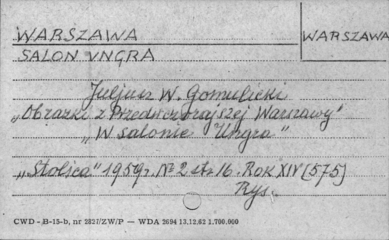 WARSZAWA
WARSZAWA
SALON UNGRA
Juljusz W. Gomulicki
„Obrazki z Przedwczorajszej Warszawy"
„W salonie Ungra"
„Stolica" 1959 r. № 2 str 16. Rok XIV (575)
Rys.
CWD - B-15-b, nr 2827/ZW/P — WDA 2694 13.12.62 1.700.000